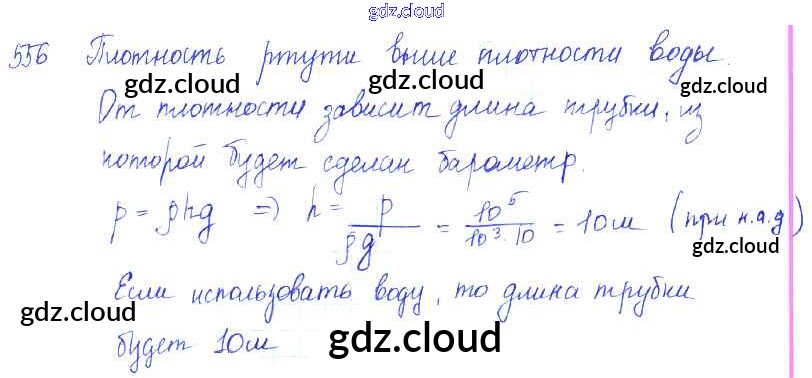 gdz.cloud
556 Плотность ртути выше плотности воды.
gdz.cloud gdz.cloud gdz.cloud
От плотности зависит длина трубки, из
которой будет сделан барометр.
gdz.cloud gdz.cloud
p = ρhg => h = p/ρg = 10^5/10^3·10 = 10м (при н.а.д)
gdz.cloud
Если использовать воду, то длина трубки
gdz.cloud gdz.cloud
будет 10м
gdz.cloud